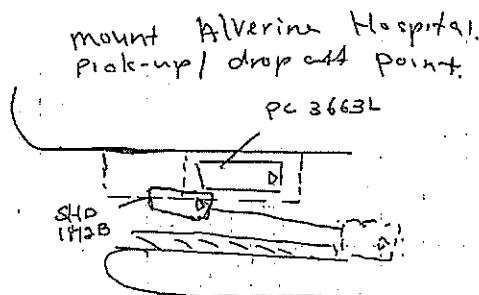 mount Alvernia Hospital.
pick-up / drop off point.
PC 3663L
SHD
1872B